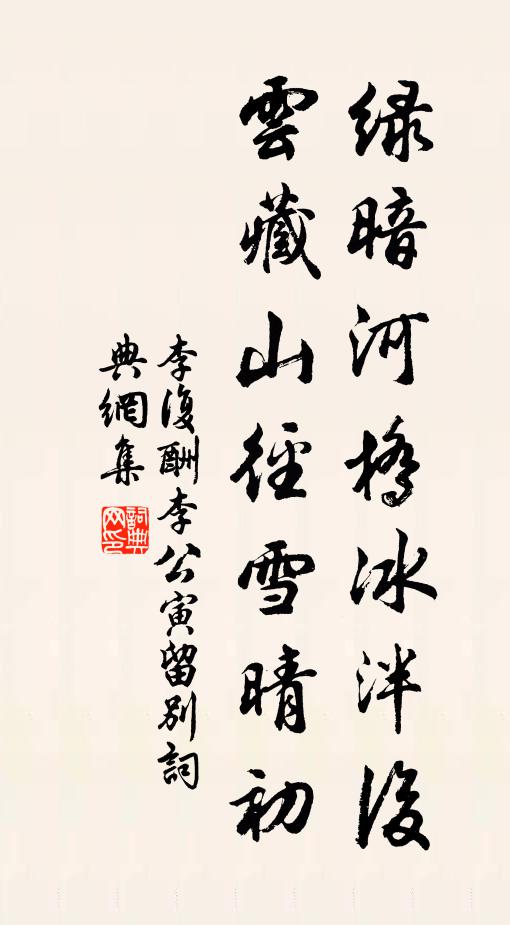 緑暗河橋冰泮後
雲藏山徑雪晴初
李復酬李公寅留别詞
典網集
詞典网印